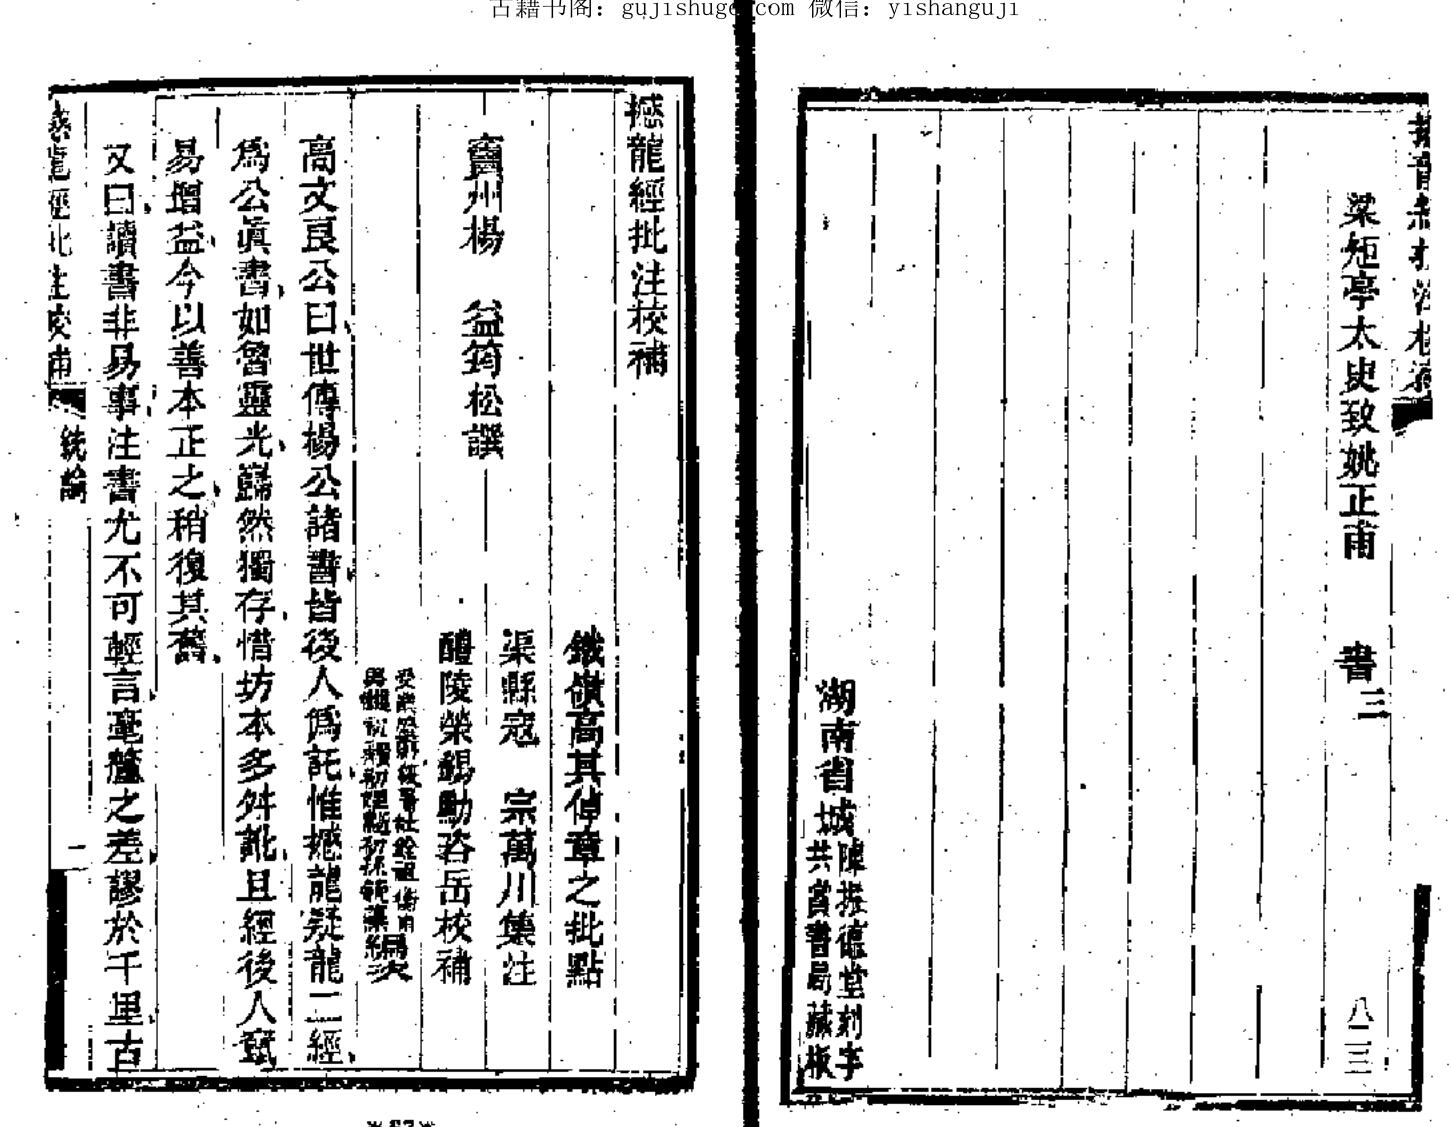 古籍书阁：gujishuge.com 微信：yishanguji
梁矩亭太史致姚正甫書三
八二三
湖南省城陳振德堂刻字
共賞書局藏板
撼龍經批注校補
鐵嶺高其倬章之批點
竇州楊 益筠松譔
渠縣寇 宗萬川集注
醴陵榮錫勳咨岳校補
高文良公曰世傳楊公諸書皆後人僞託惟撼龍疑龍二經
爲公眞書如魯靈光巋然獨存惜坊本多舛訛且經後人竄
易增益今以善本正之稍復其舊
又曰讀書非易事注書尤不可輕言毫釐之差謬於千里古
撼龍經批注校補 統論 一